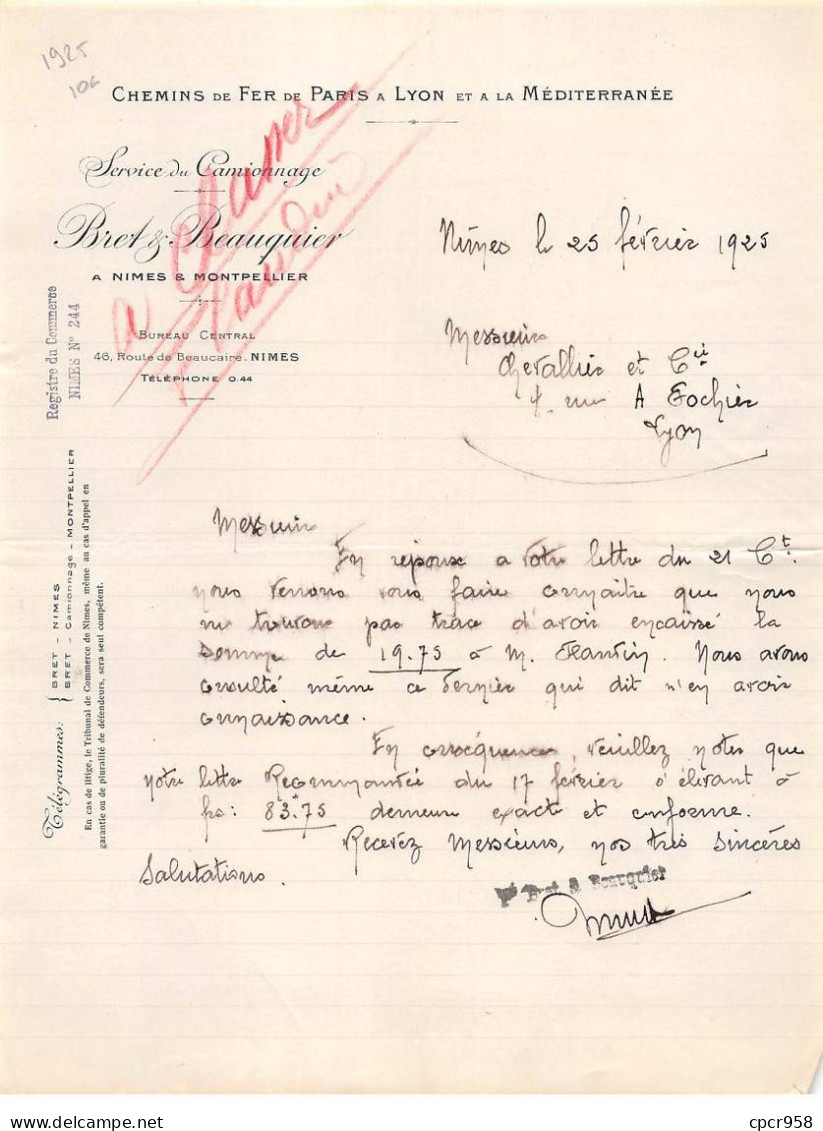 1925
10€
CHEMINS DE FER DE PARIS A LYON ET A LA MÉDITERRANÉE
Service du Camionnage
Bret & Beauquier
A NIMES & MONTPELLIER
BUREAU CENTRAL
46, Route de Beaucaire. NIMES
TÉLÉPHONE 0.44
a Classer
Registre du Commerce
NIMES N° 244
Télégrammes:
BRET - NIMES
BRET - Camionnage - MONTPELLIER
En cas de litige, le Tribunal de Commerce de Nimes, même au cas d'appel en
garantie ou de pluralité de défendeurs, sera seul compétent.
Nimes le 25 février 1925
Messieurs
Chevallier et Cie
4 rue A Fochier
Lyon
Messieurs
En reponse a votre lettre du 21 Ct.
nous venons vous faire connaitre que nous
ne trouvons pas trace d'avoir encaissé la
somme de 19.75 à M. Flandin. Nous avons
consulté même ce dernier qui dit n'en avoir
connaissance.
En conséquence, veuillez noter que
notre lettre Recommandée du 17 février s'élevant à
frs: 83.75 demeure exacte et conforme.
Recevez Messieurs, nos très sincères
Salutations.
Pr Bret & Beauquier
delcampe.net
cpcr958